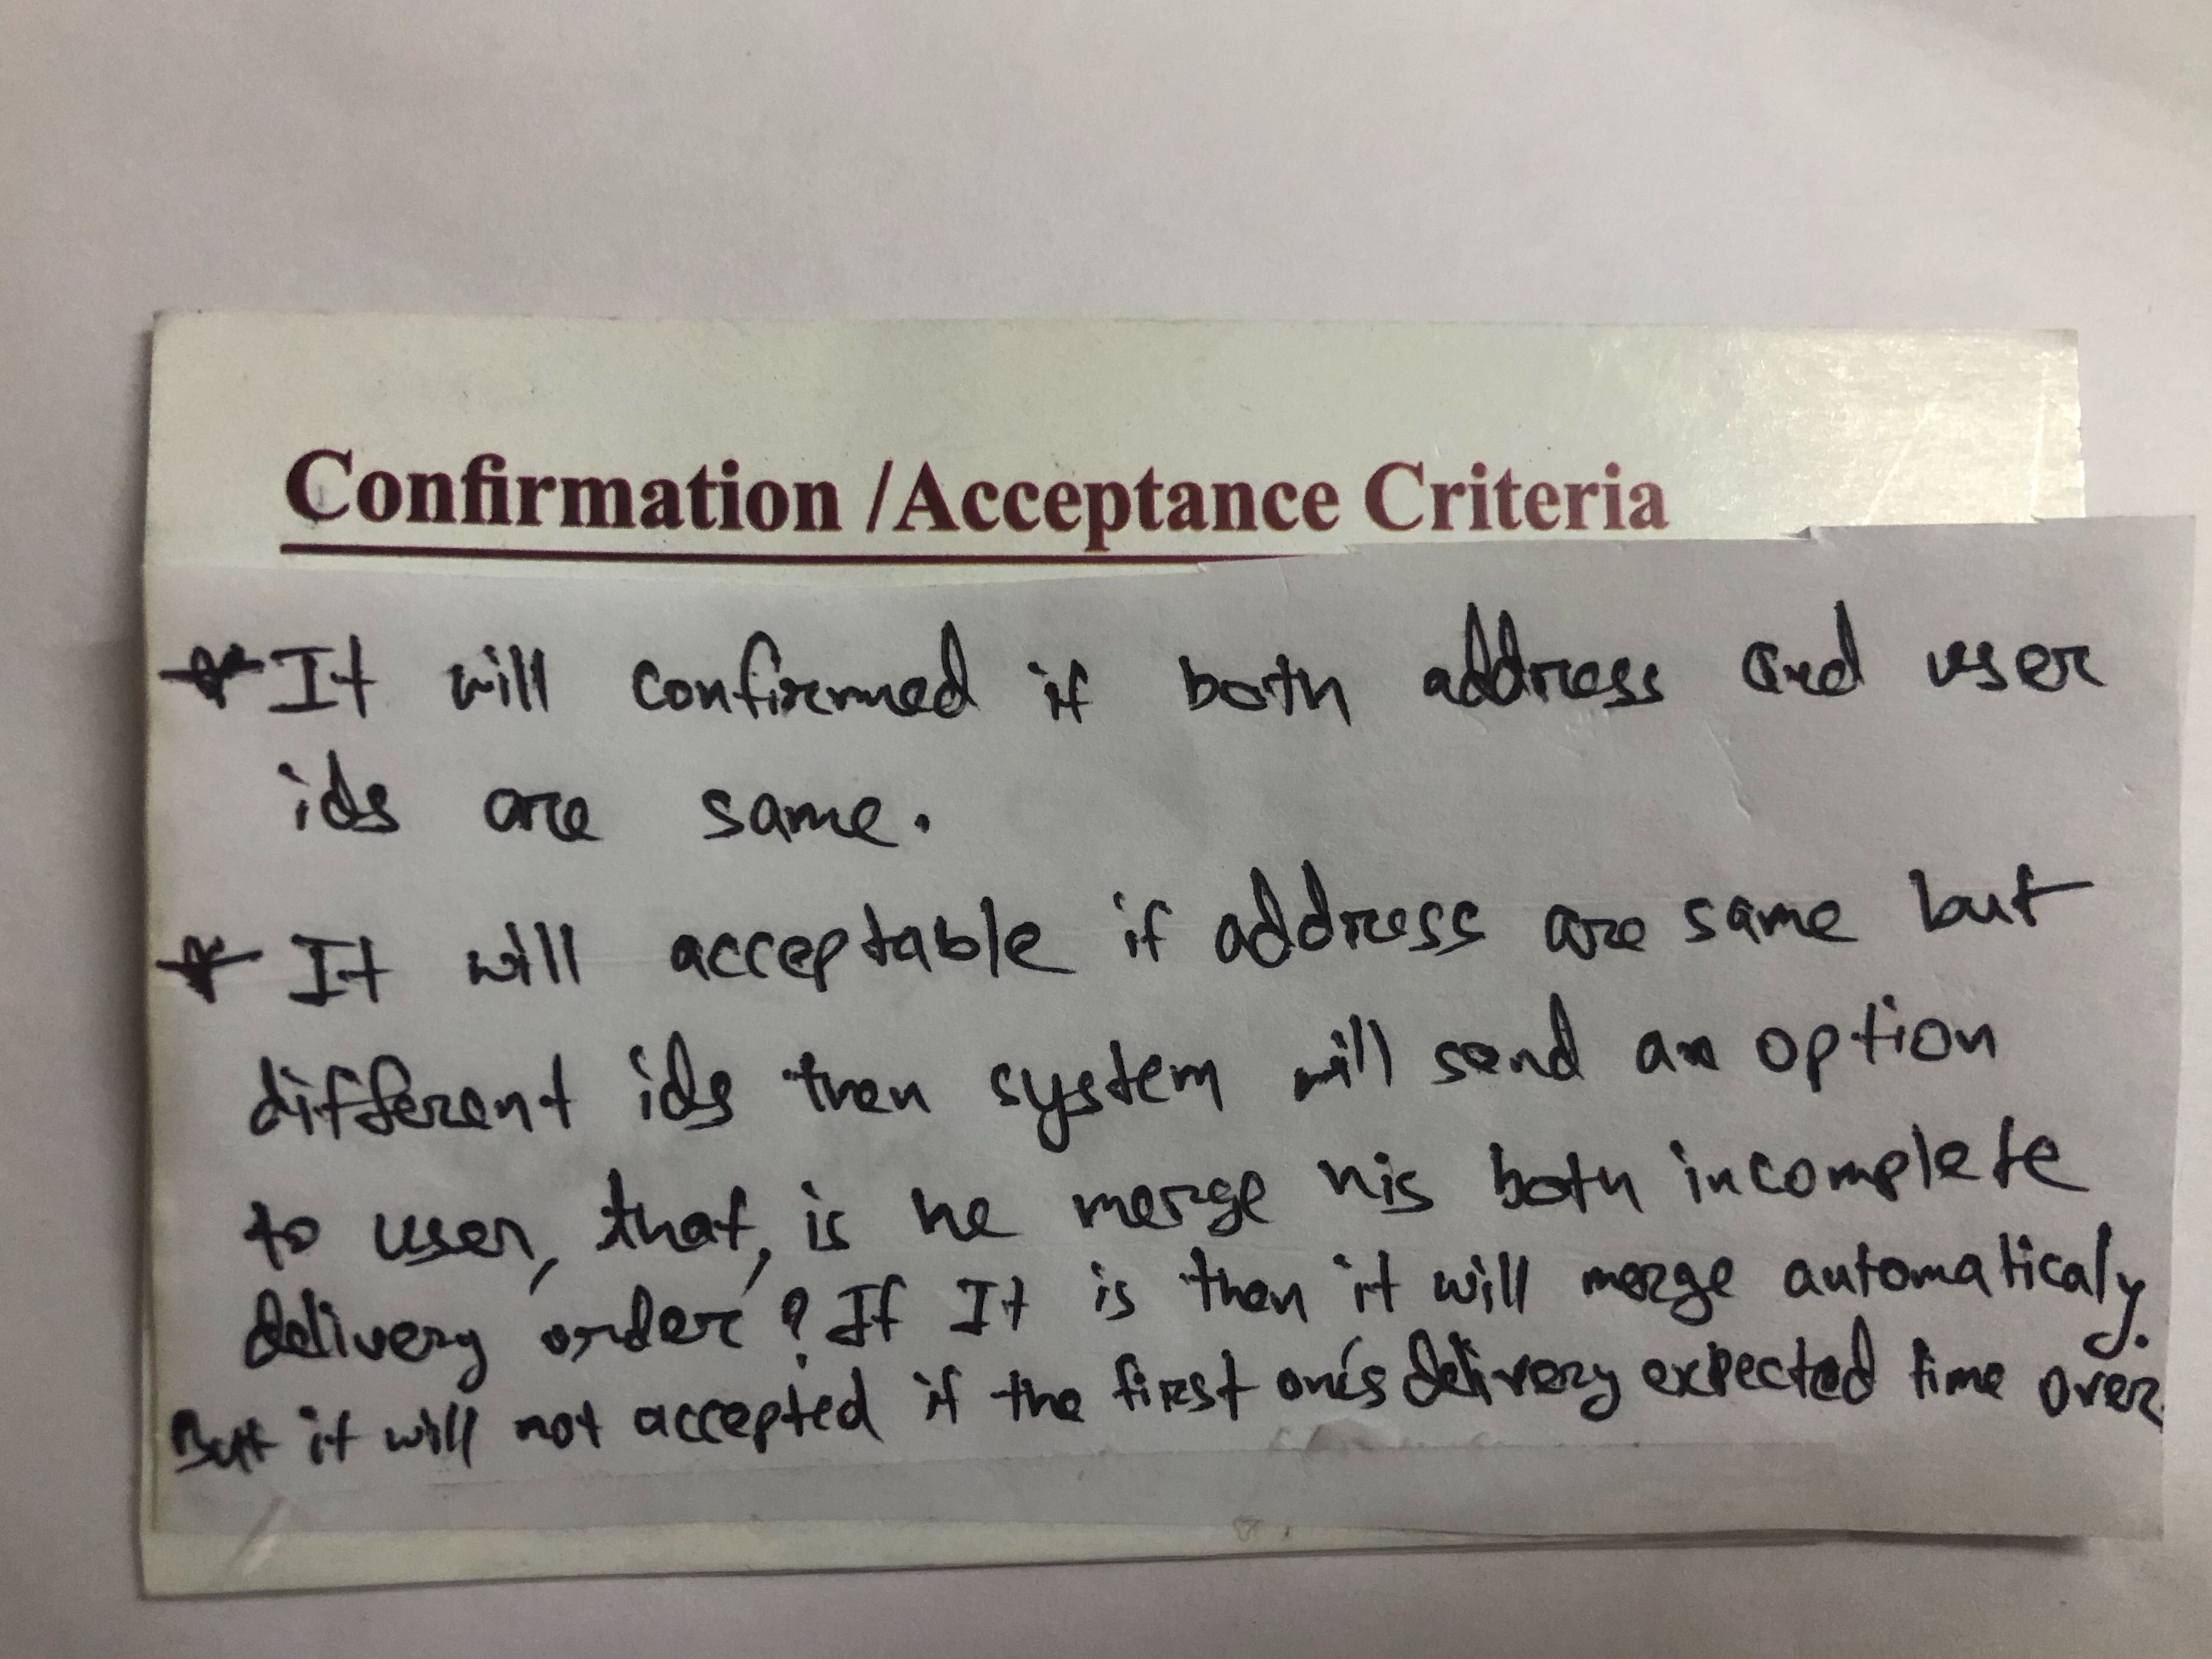 Confirmation /Acceptance Criteria
* It will confirmed if both address and user
ids are same.
* It will acceptable if address are same but
different ids then system will send an option
to user, that, is he merge his both incomplete
delivery order? If It is then it will merge automaticaly.
But it will not accepted if the first one's delivery expected time over